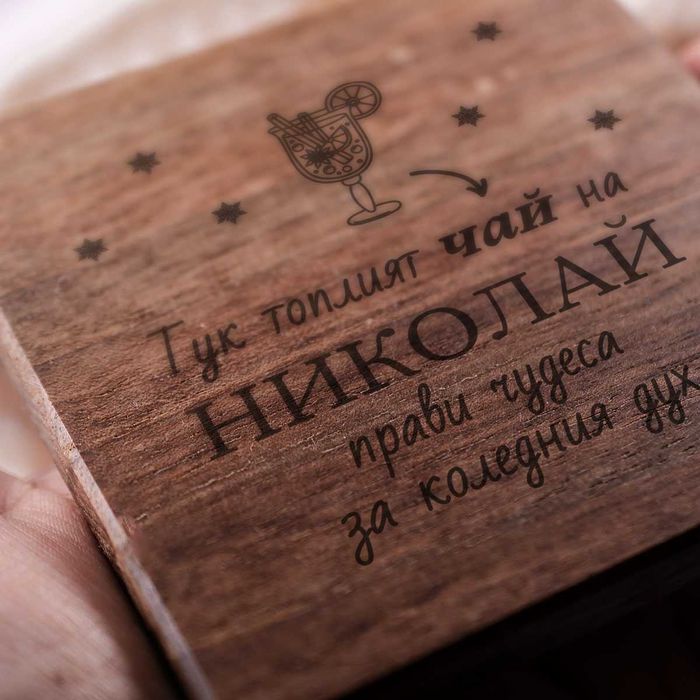 Тук топлият чай на
НИКОЛАЙ
прави чудеса
за коледния дух